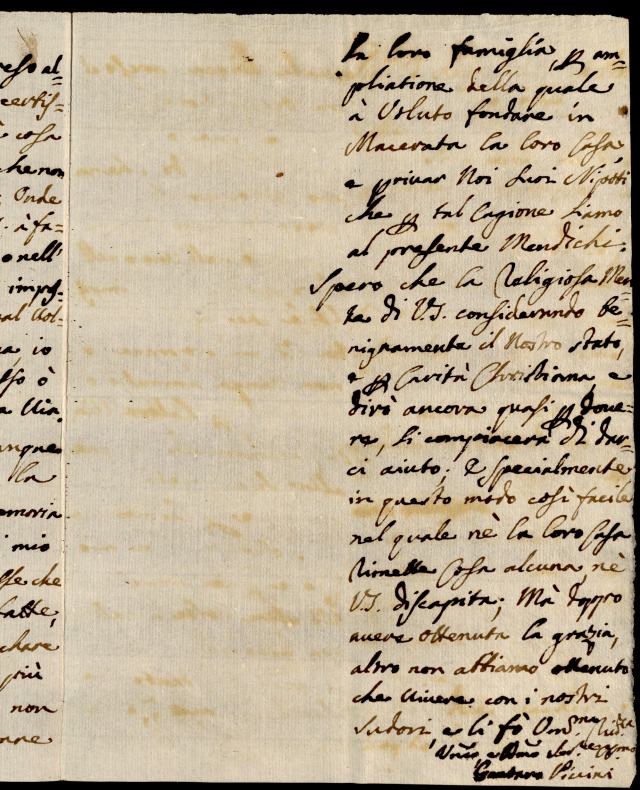 reso al=
certis=
cosa
che non
Onde
à fa=
o nell'
impos=
al Vol=
a io
sso ò
a Via
unque
lla
emoria
mio
sse che
fatte,
chare
più
non
nne
la loro famiglia, ꝑ am=
pliatione della quale
à Voluto fondare in
Macerata la loro Casa,
e privar Noi suoi Nipoti
che ꝑ tal Cagione siamo
al presente Mendichi.
Spero che la Religiosa Men
te di V.S. considerando be=
nignamente il Nostro stato,
e ꝑ Carità Christiana, e
dirò ancora quasi ꝑ dove=
re, si compiacerà di dar=
ci aiuto; e specialmente
in questo modo così facile
nel quale nè la loro Casa
rimette Cosa alcuna, nè
V.S. discapita; Mà doppo
avere ottenuta la grazia,
altro non abbiamo ottenuto
che vivere con i nostri
sudori, e li fò
Gaetano Picini